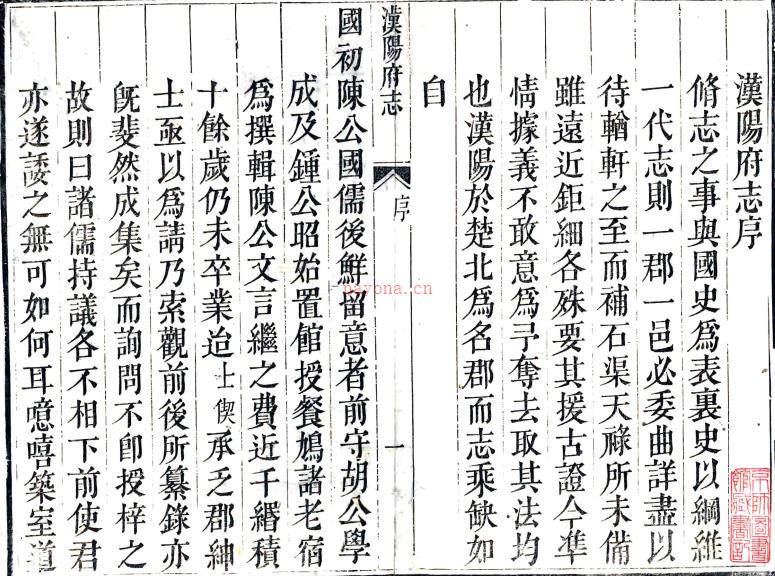 漢陽府志序
脩志之事與國史爲表裏史以綱維
一代志則一郡一邑必委曲詳盡以
待輶軒之至而補石渠天祿所未備
雖遠近鉅細各殊要其援古證今準
情據義不敢意爲予奪去取其法均
也漢陽於楚北爲名郡而志乘缺如
自
漢陽府志
序
一
國初陳公國儒後鮮留意者前守胡公學
成及鍾公昭始置館授餐鳩諸老宿
爲撰輯陳公文言繼之費近千緡積
十餘歲仍未卒業迨士偰承乏郡紳
士亟以爲請乃索觀前後所纂錄亦
旣斐然成集矣而詢問不卽授梓之
故則曰諸儒持議各不相下前使君
亦遂諉之無可如何耳噫嘻築室道
京師圖書館藏書記
nayona.cn